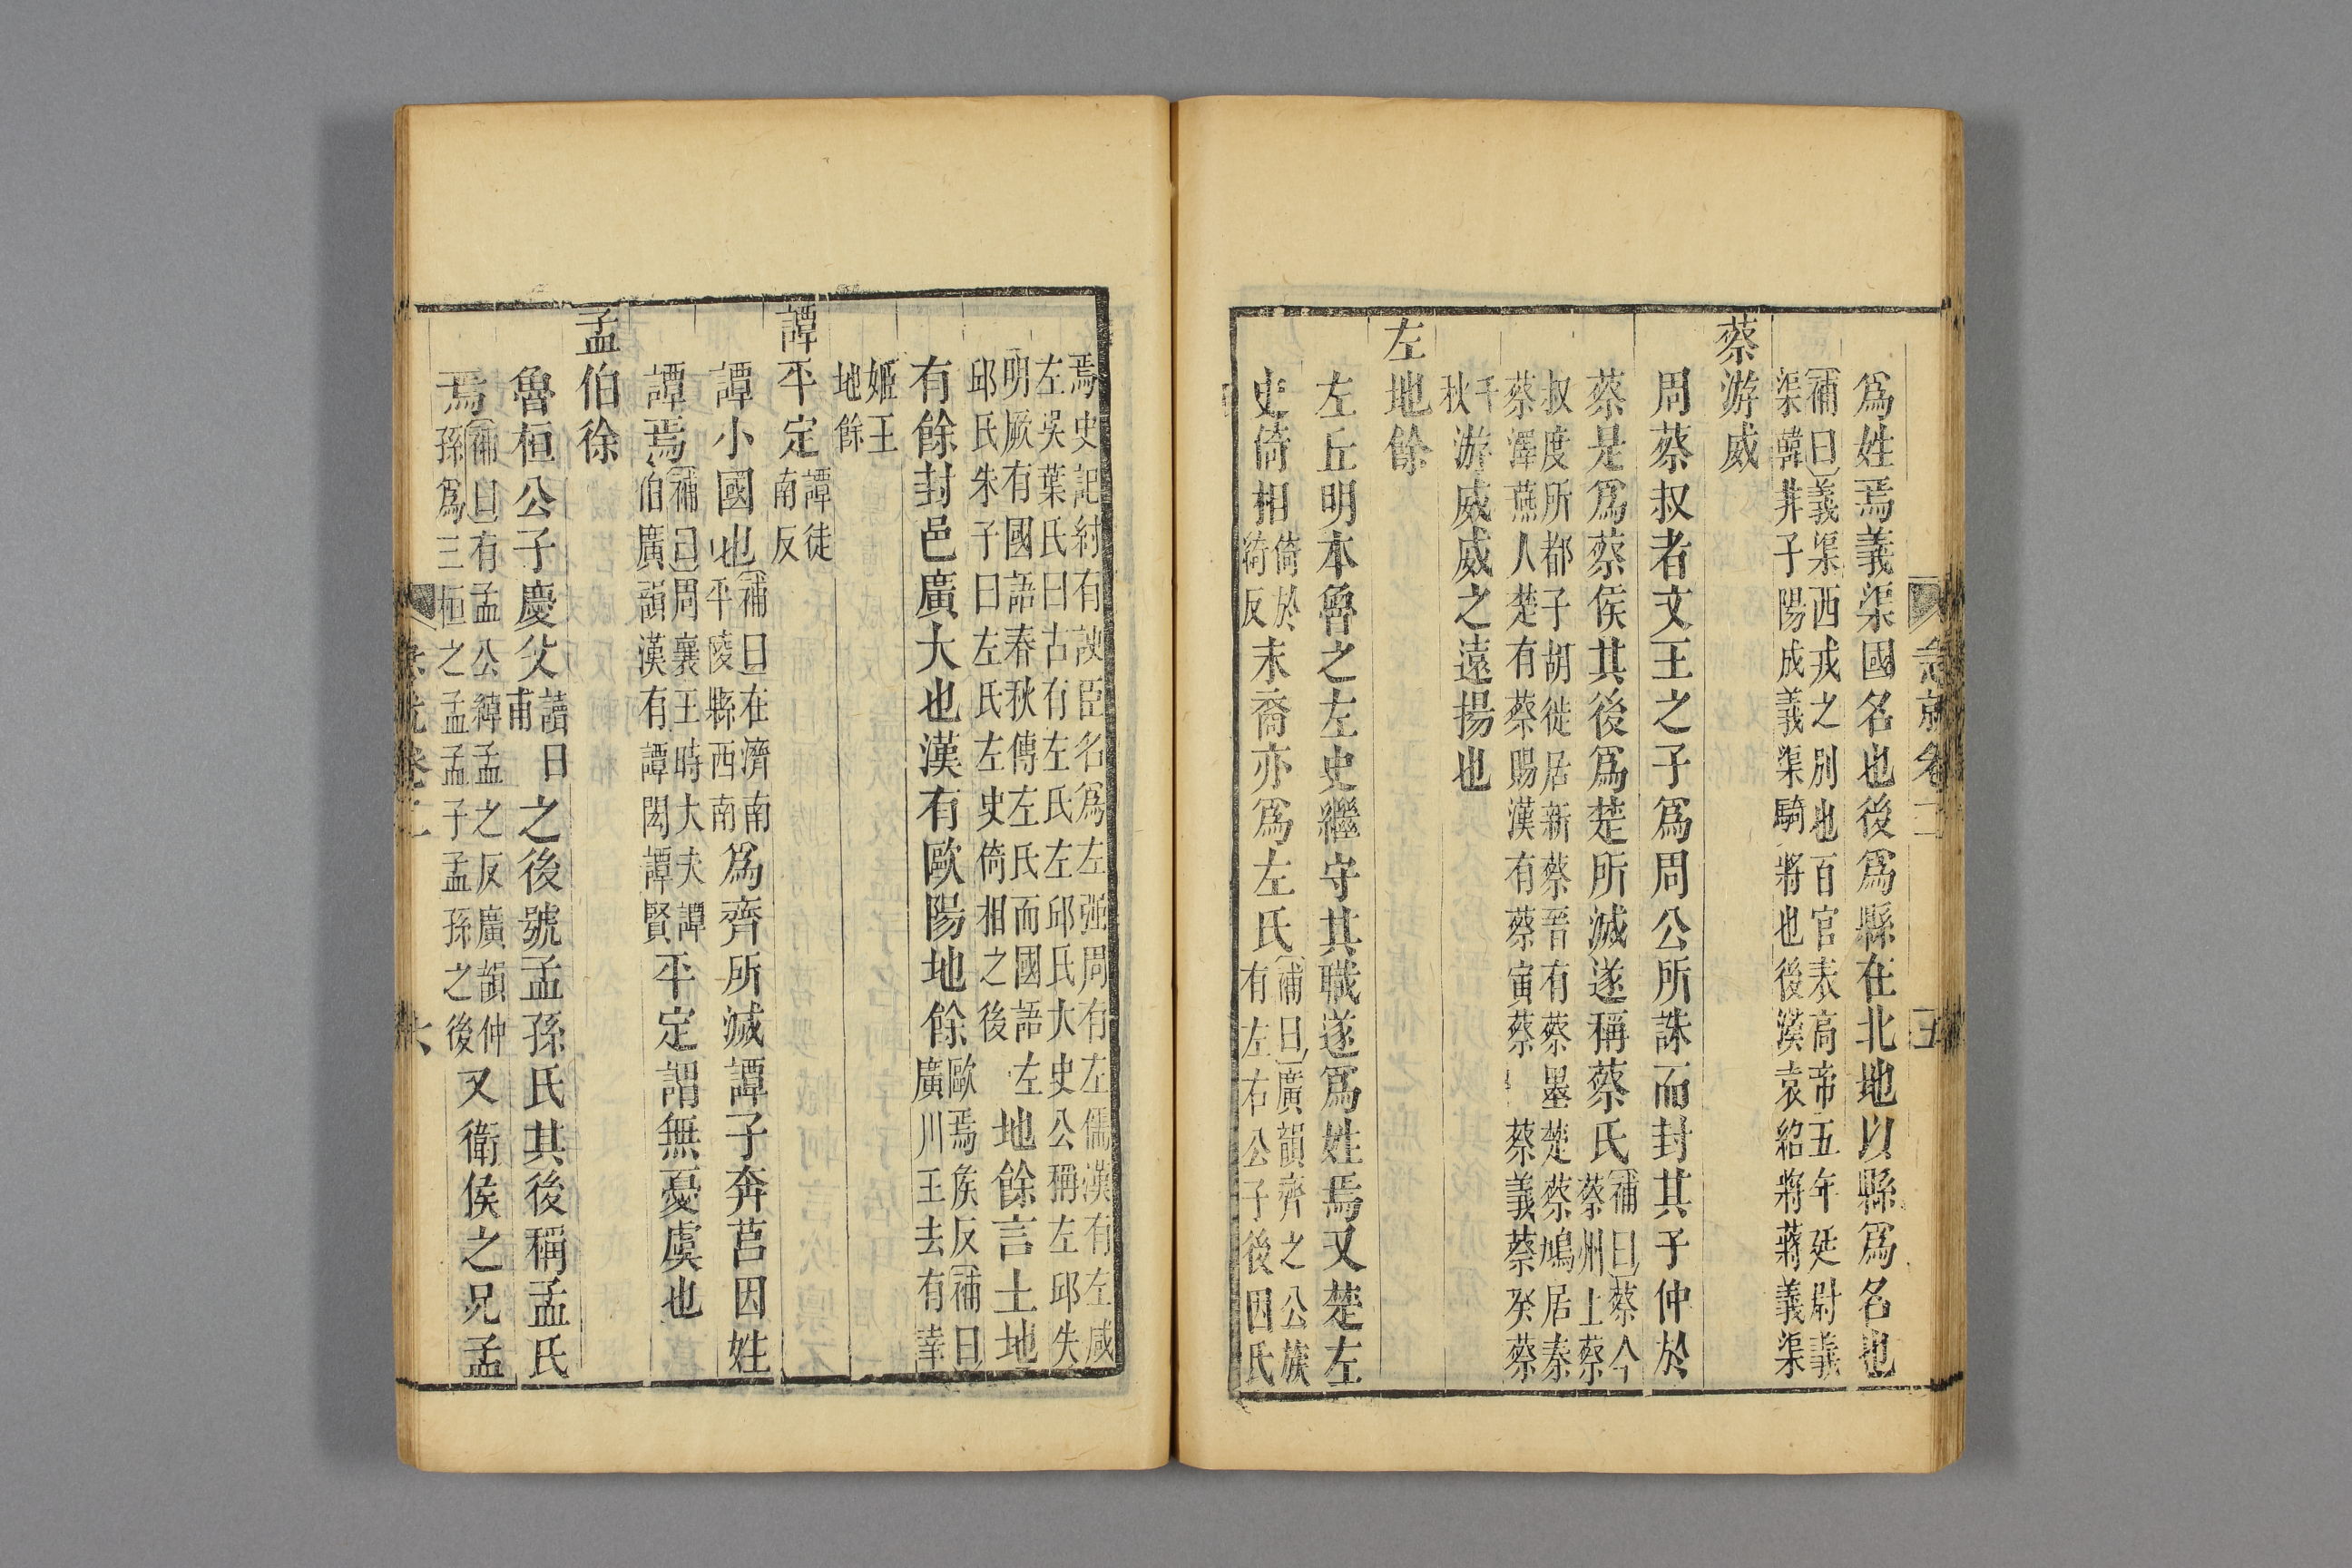 急就卷二
五
爲姓焉義渠國名也後爲縣在北地以縣爲名也
補曰義渠西戎之別也百官表高帝五年延尉義
渠韓井子陽成義渠騎將也後漢袁紹將蔣義渠
蔡游威
周蔡叔者文王之子爲周公所誅而封其子仲於
蔡是爲蔡侯其後爲楚所滅遂稱蔡氏
補曰蔡今
蔡州上蔡
叔度所都子胡徙居新蔡晉有蔡墨楚蔡鳩居秦
蔡澤燕人楚有蔡賜漢有蔡寅蔡 蔡義蔡癸蔡
千
秋
游威威之遠揚也
左地餘
左丘明本魯之左史繼守其職遂爲姓焉又楚左
史倚相
倚於
綺反
末裔亦爲左氏
補曰廣韻齊之公族
有左右公子後因氏
焉史記紂有諛臣名爲左强周有左儒漢有左咸
左吳葉氏曰古有左氏左邱氏大史公稱左邱失
明厥有國語春秋傳左氏而國語左
邱氏朱子曰左氏左史倚相之後
地餘言土地
有餘封邑廣大也漢有歐陽地餘
歐焉侯反補曰
廣川王去有幸
姬王
地餘
譚平定
譚徒
南反
譚小國也
補曰在濟南
平陵縣西南
爲齊所滅譚子奔莒因姓
譚焉
補曰周襄王時大夫譚
伯廣韻漢有譚閎譚賢
平定謂無憂虞也
孟伯徐
魯桓公子慶父
讀曰
甫
之後號孟孫氏其後稱孟氏
焉
補曰有孟公綽孟之反廣韻仲
孫爲三桓之孟孟子孟孫之後
又衛侯之兄孟
急就卷二
六